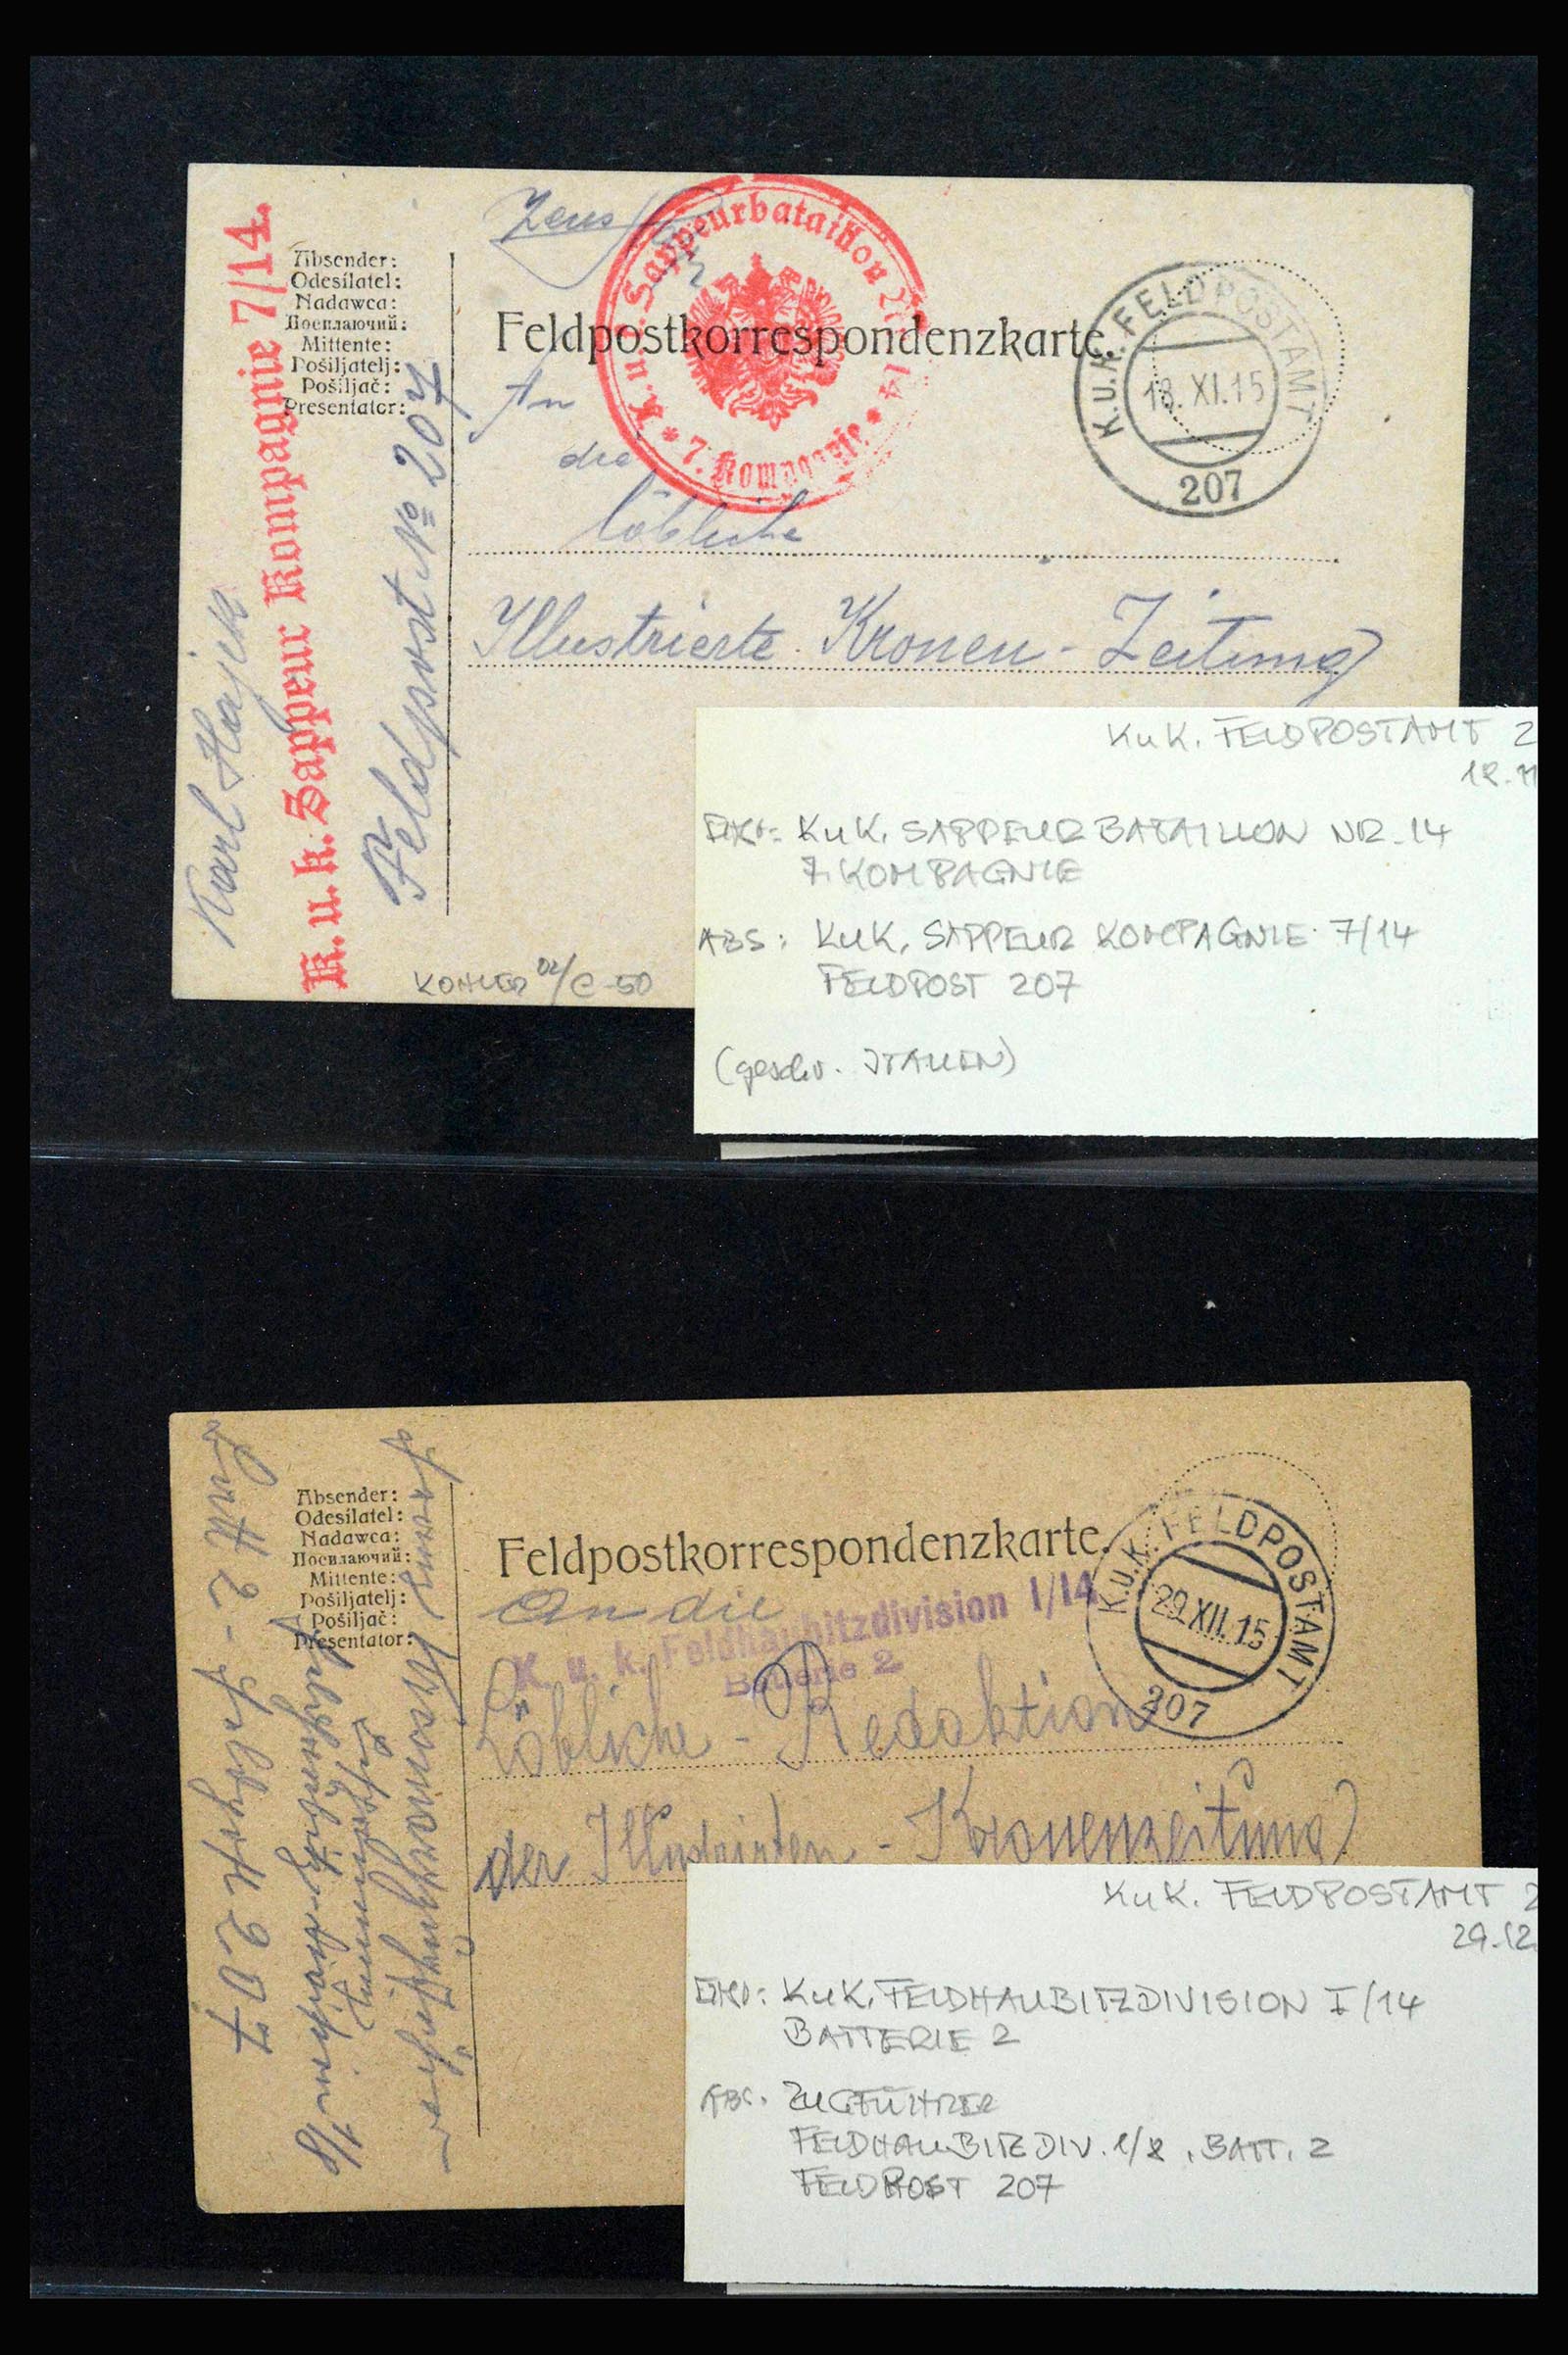 Karl Hajek
K. u. k. Sappeur Kompagnie 7/14.
Absender:
Odesílatel:
Nadawca:
Посилаючий:
Mittente:
Pošiljatelj:
Pošiljač:
Presentator:
Feldpost № 207
K. u. k. Sappeurbataillon Nr. 14
* 7. Kompagnie *
Feldpostkorrespondenzkarte.
K.u.K. FELDPOSTAMT
18. XI. 15
207
An
die
löbliche
Illustrierte Kronen-Zeitung
KOHLER 02/€-50
KuK. FELDPOSTAMT 2
KuK. SAPPEURBATAILLON NR. 14
7. KOMPAGNIE
ABS: KuK. SAPPEUR KOMPAGNIE 7/14
FELDPOST 207
(geschr. ITALIEN)
Batt 2 - Feldpost 207
Absender:
Odesílatel:
Nadawca:
Посилаючий:
Mittente:
Pošiljatelj:
Pošiljač:
Presentator:
Feldpostkorrespondenzkarte.
K.u.K. FELDPOSTAMT
29. XII. 15
207
An die
K. u. k. Feldhaubitzdivision I/14
Batterie 2
Löbliche - Redaktion
der Illustrirten - Kronenzeitung
KuK. FELDPOSTAMT 2
29.12
KuK. FELDHAUBITZDIVISION I/14
BATTERIE 2
ABS. ZUGFÜHRER
FELDHAUBITZDIV. 1/2, BATT. 2
FELDPOST 207